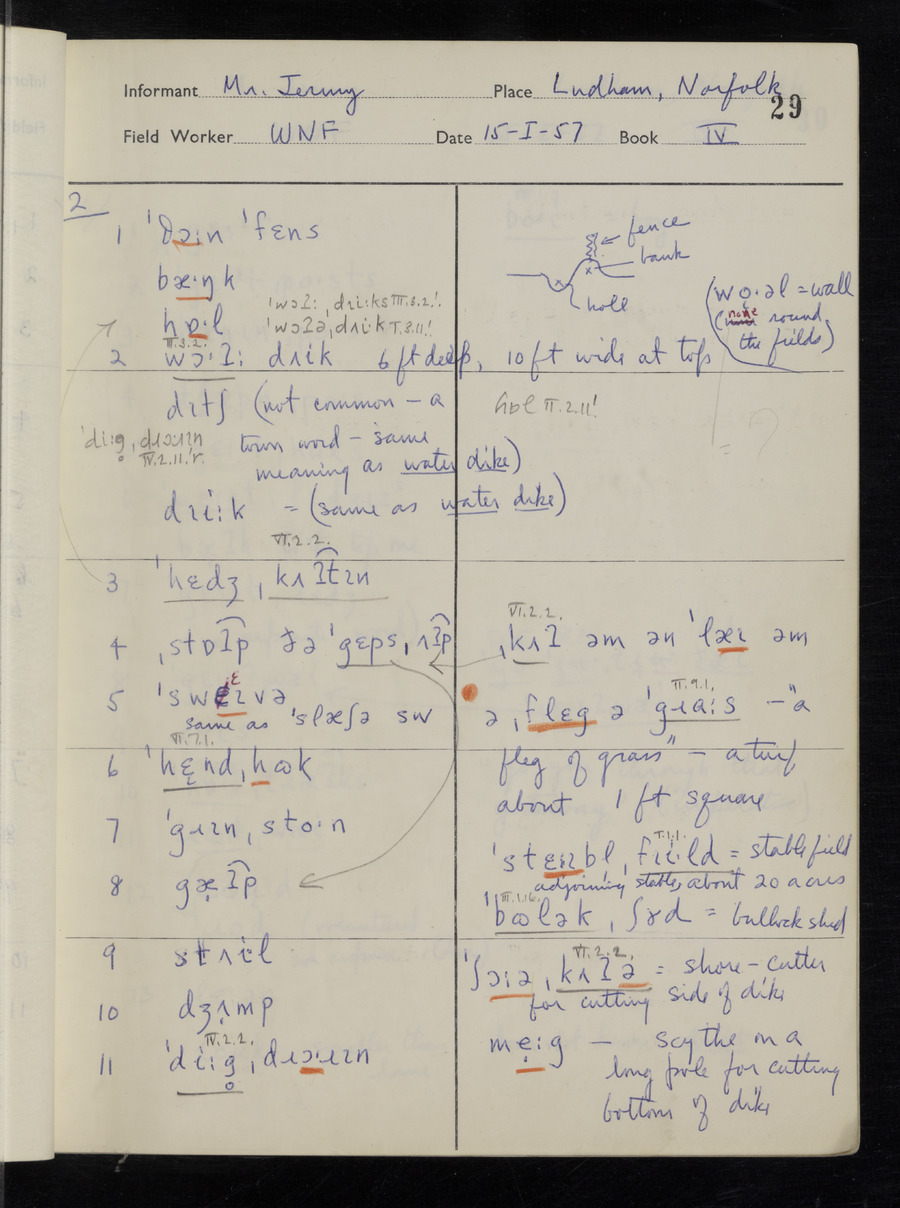 Informant Mr. Jermy Place Ludham, Norfolk
29
Field Worker WNF Date 15-I-57 Book IV
2
1 ˈðɔːn ˈfɛns
bæˑŋk
hɒˑl
III.3.2.
2 wɔˑʔː dɹik 6 ft deep, 10 ft wide at top
dɪtʃ (not common – a
town word – same
meaning as water dike)
IV.2.11.
dɹiːk = (same as water dike)
VI.2.2.
3 ˈhɛdʒ ˌkʌʔtɪn
4 ˌstɒʔp ðə ˈgɛps, ʌʔp
5 ˈswɛɪvə
same as ˈslæʃə sw
VI.7.1.
6 ˈhɛnd ˌhʊk
7 ˈgɹɪn ˌstoːn
8 gæʔp
9 stʌil
10 dʒʌmp
IV.2.2.
11 ˈdiːg̊ ˌdɹɔːɪɪn
fence
bank
hole
(wɔˑəl = wall
(none round
the fields)
hɒl II.2.11!
VI.2.2.
ˌkʌʔ əm ən ˈlæɪ əm
II.9.1.
ə ˌflɛg ə ˈgɹaːs – "a
fleg of grass" – a turf
about 1 ft square
I.1.1.
ˈstɛɪbl ˌfiːld = stable field
adjoining stable, about 20 acres
III.1.16.
ˈbʊlək ˌʃɤd = bullock shed
VI.2.2.
ˈʃɔːə ˌkʌʔə = shore-cutter
for cutting side of dike
meːg – scythe on a
long pole for cutting
bottom of dike